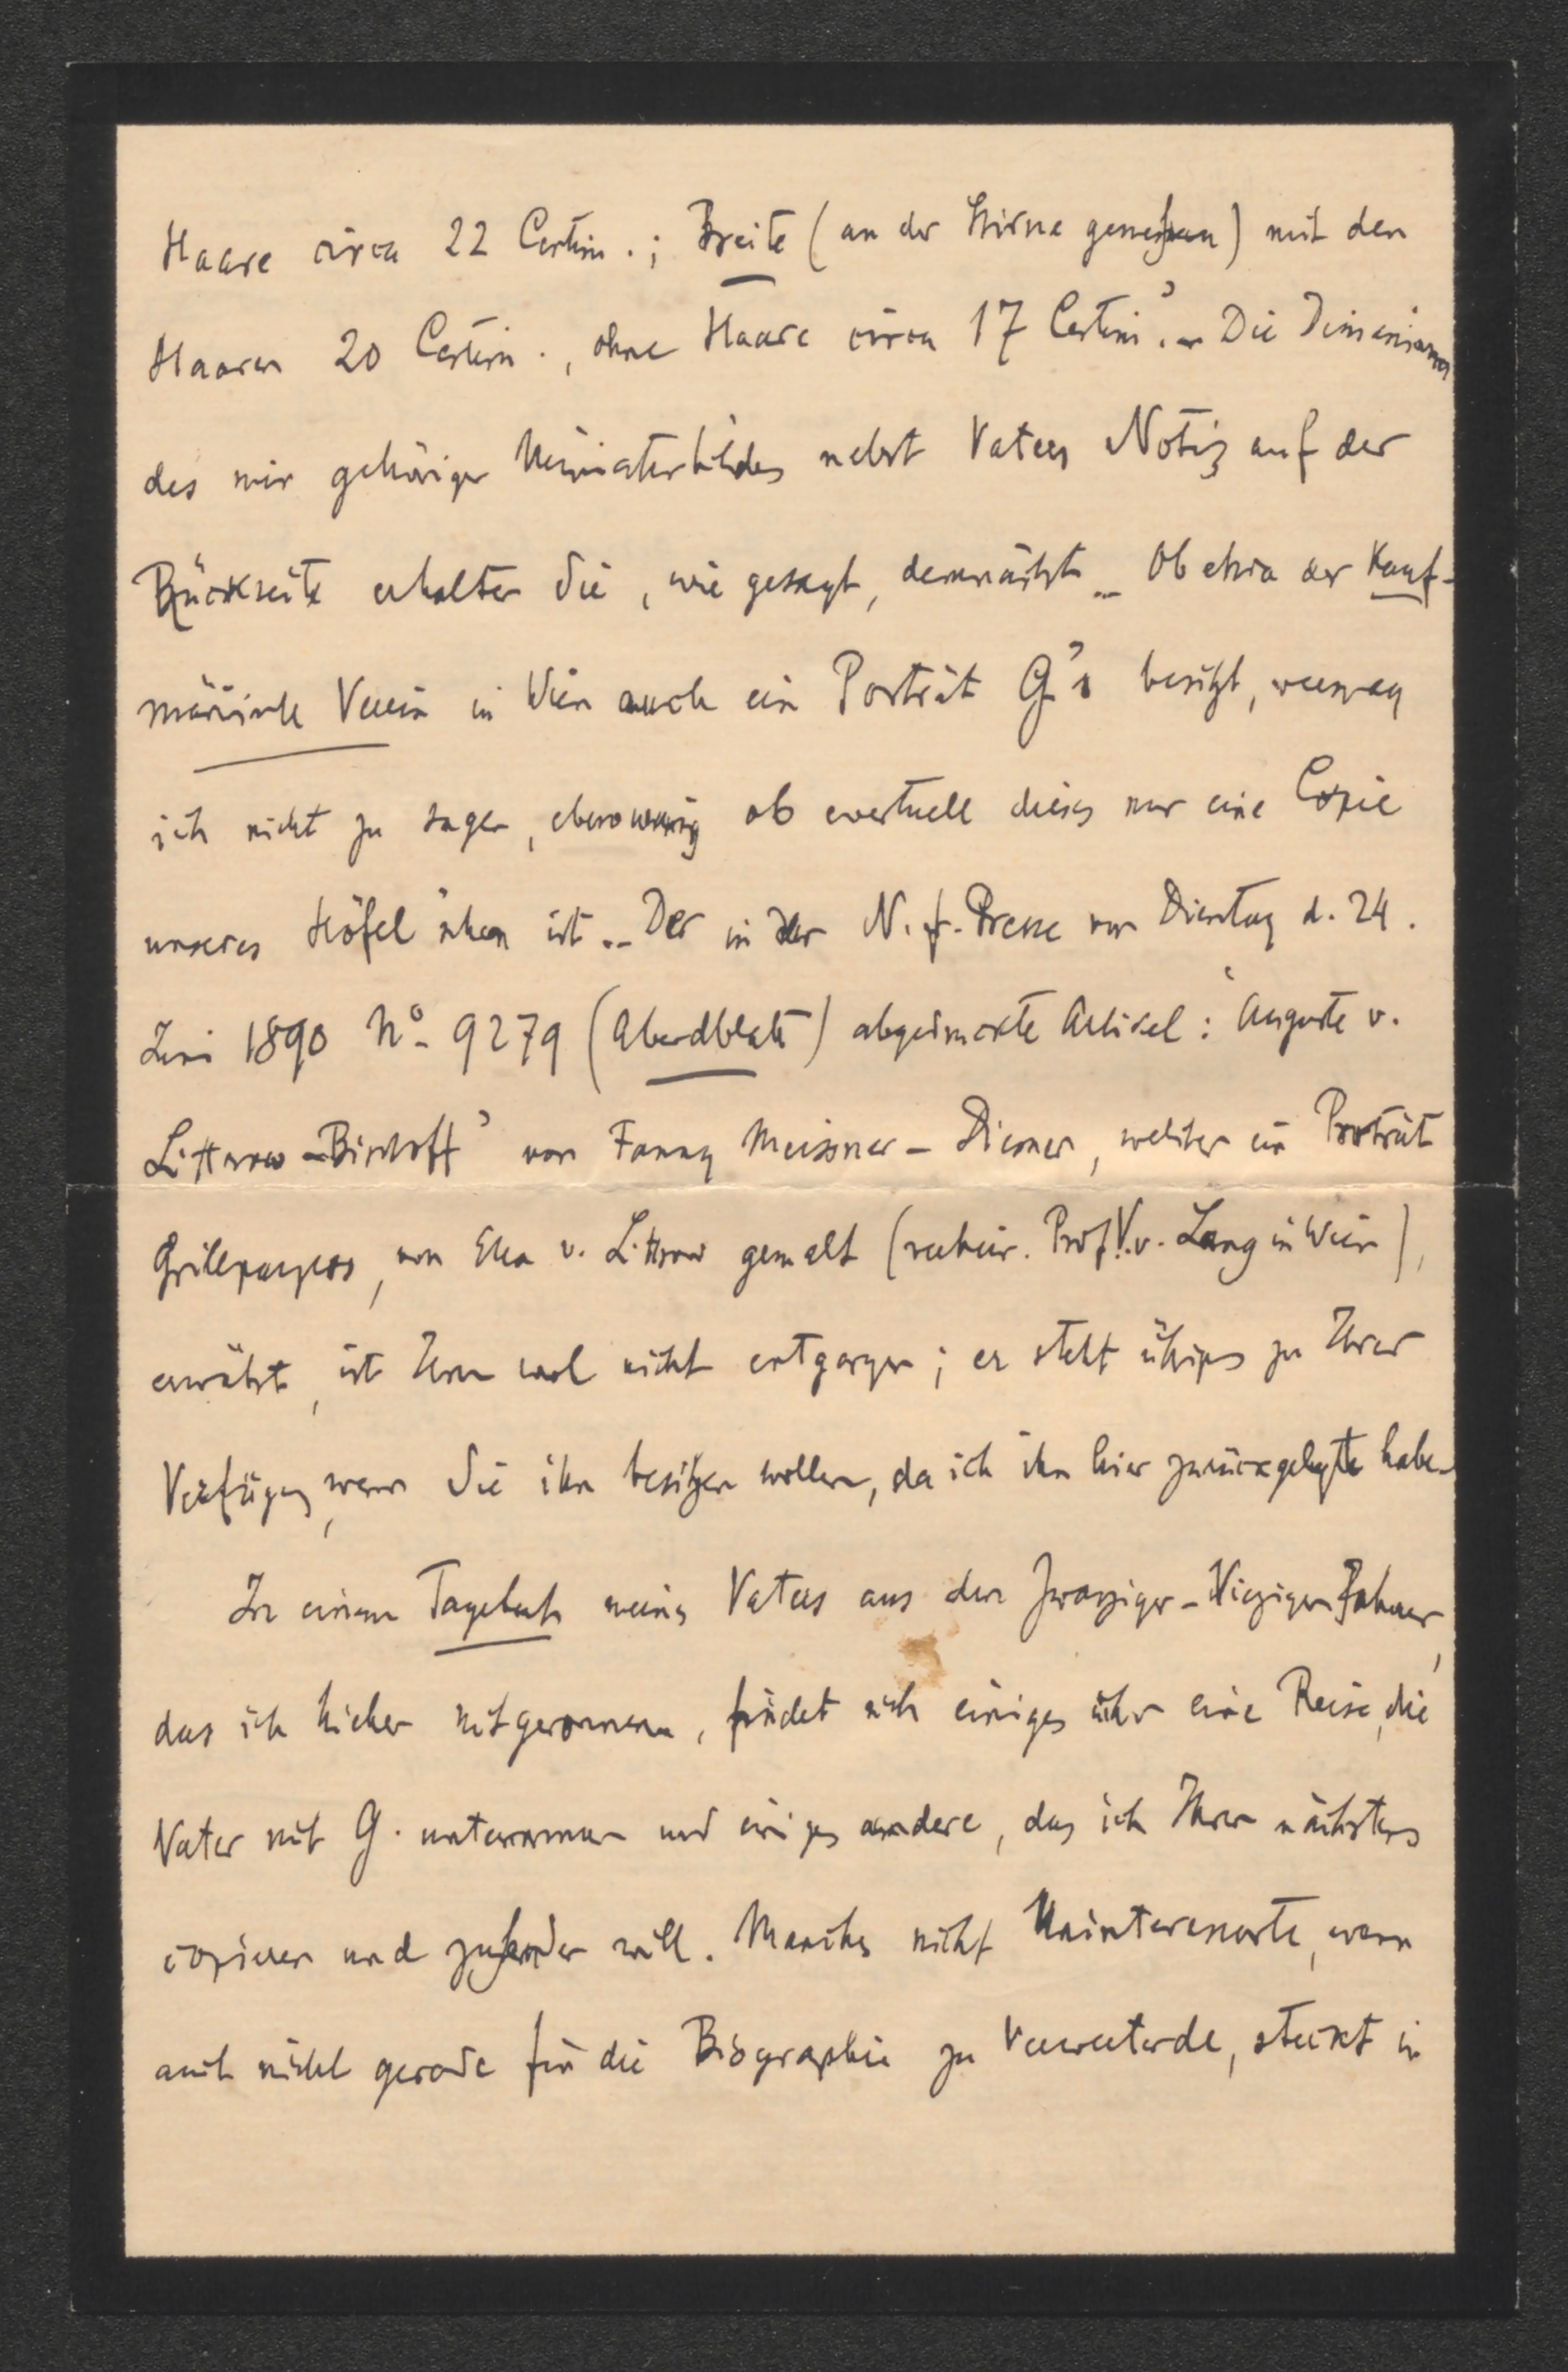 Haare circa 22 Centim.; Breite (an der Stirne gemessen) mit den
Haaren 20 Centim., ohne Haare circa 17 Centim. – Die Dimensionen
des mir gehörigen Miniaturbildes nebst Vaters Notiz auf der
Rückseite erhalten Sie, wie gesagt, demnächst – Ob etwa der Kauf-
männische Verein in Wien auch ein Porträt G's besitzt, vermag
ich nicht zu sagen, ebensowenig ob eventuell dieses nur eine Copie
unseres Höfel'schen ist. – Der in der N. f. Presse von Dienstag d. 24.
Juni 1890 No. 9279 (Abendblatt) abgedruckte Artikel: 'Auguste v.
Littrow-Bischoff' von Fanny Meissner-Diemer, welcher ein Porträt
Grillparzers, von Ella v. Littrow gemalt (recte: Prof. V. v. Lang in Wien),
erwähnt, ist Ihnen wol nicht entgangen; er steht übrigens zu Ihrer
Verfügung, wenn Sie ihn besitzen wollen, da ich ihn hier zurückgelegt habe.
In einem Tagebuch meines Vaters aus den Zwanziger-Vierziger Jahren,
das ich hieher mitgenommen, findet sich einiges über eine Reise, die
Vater mit G. unternommen und einiges andere, das ich Ihnen nächstens
copieren und zusenden will. Manches nicht Uninteressante, wenn
auch nicht gerade für die Biographie zu Verwertende, steckt in